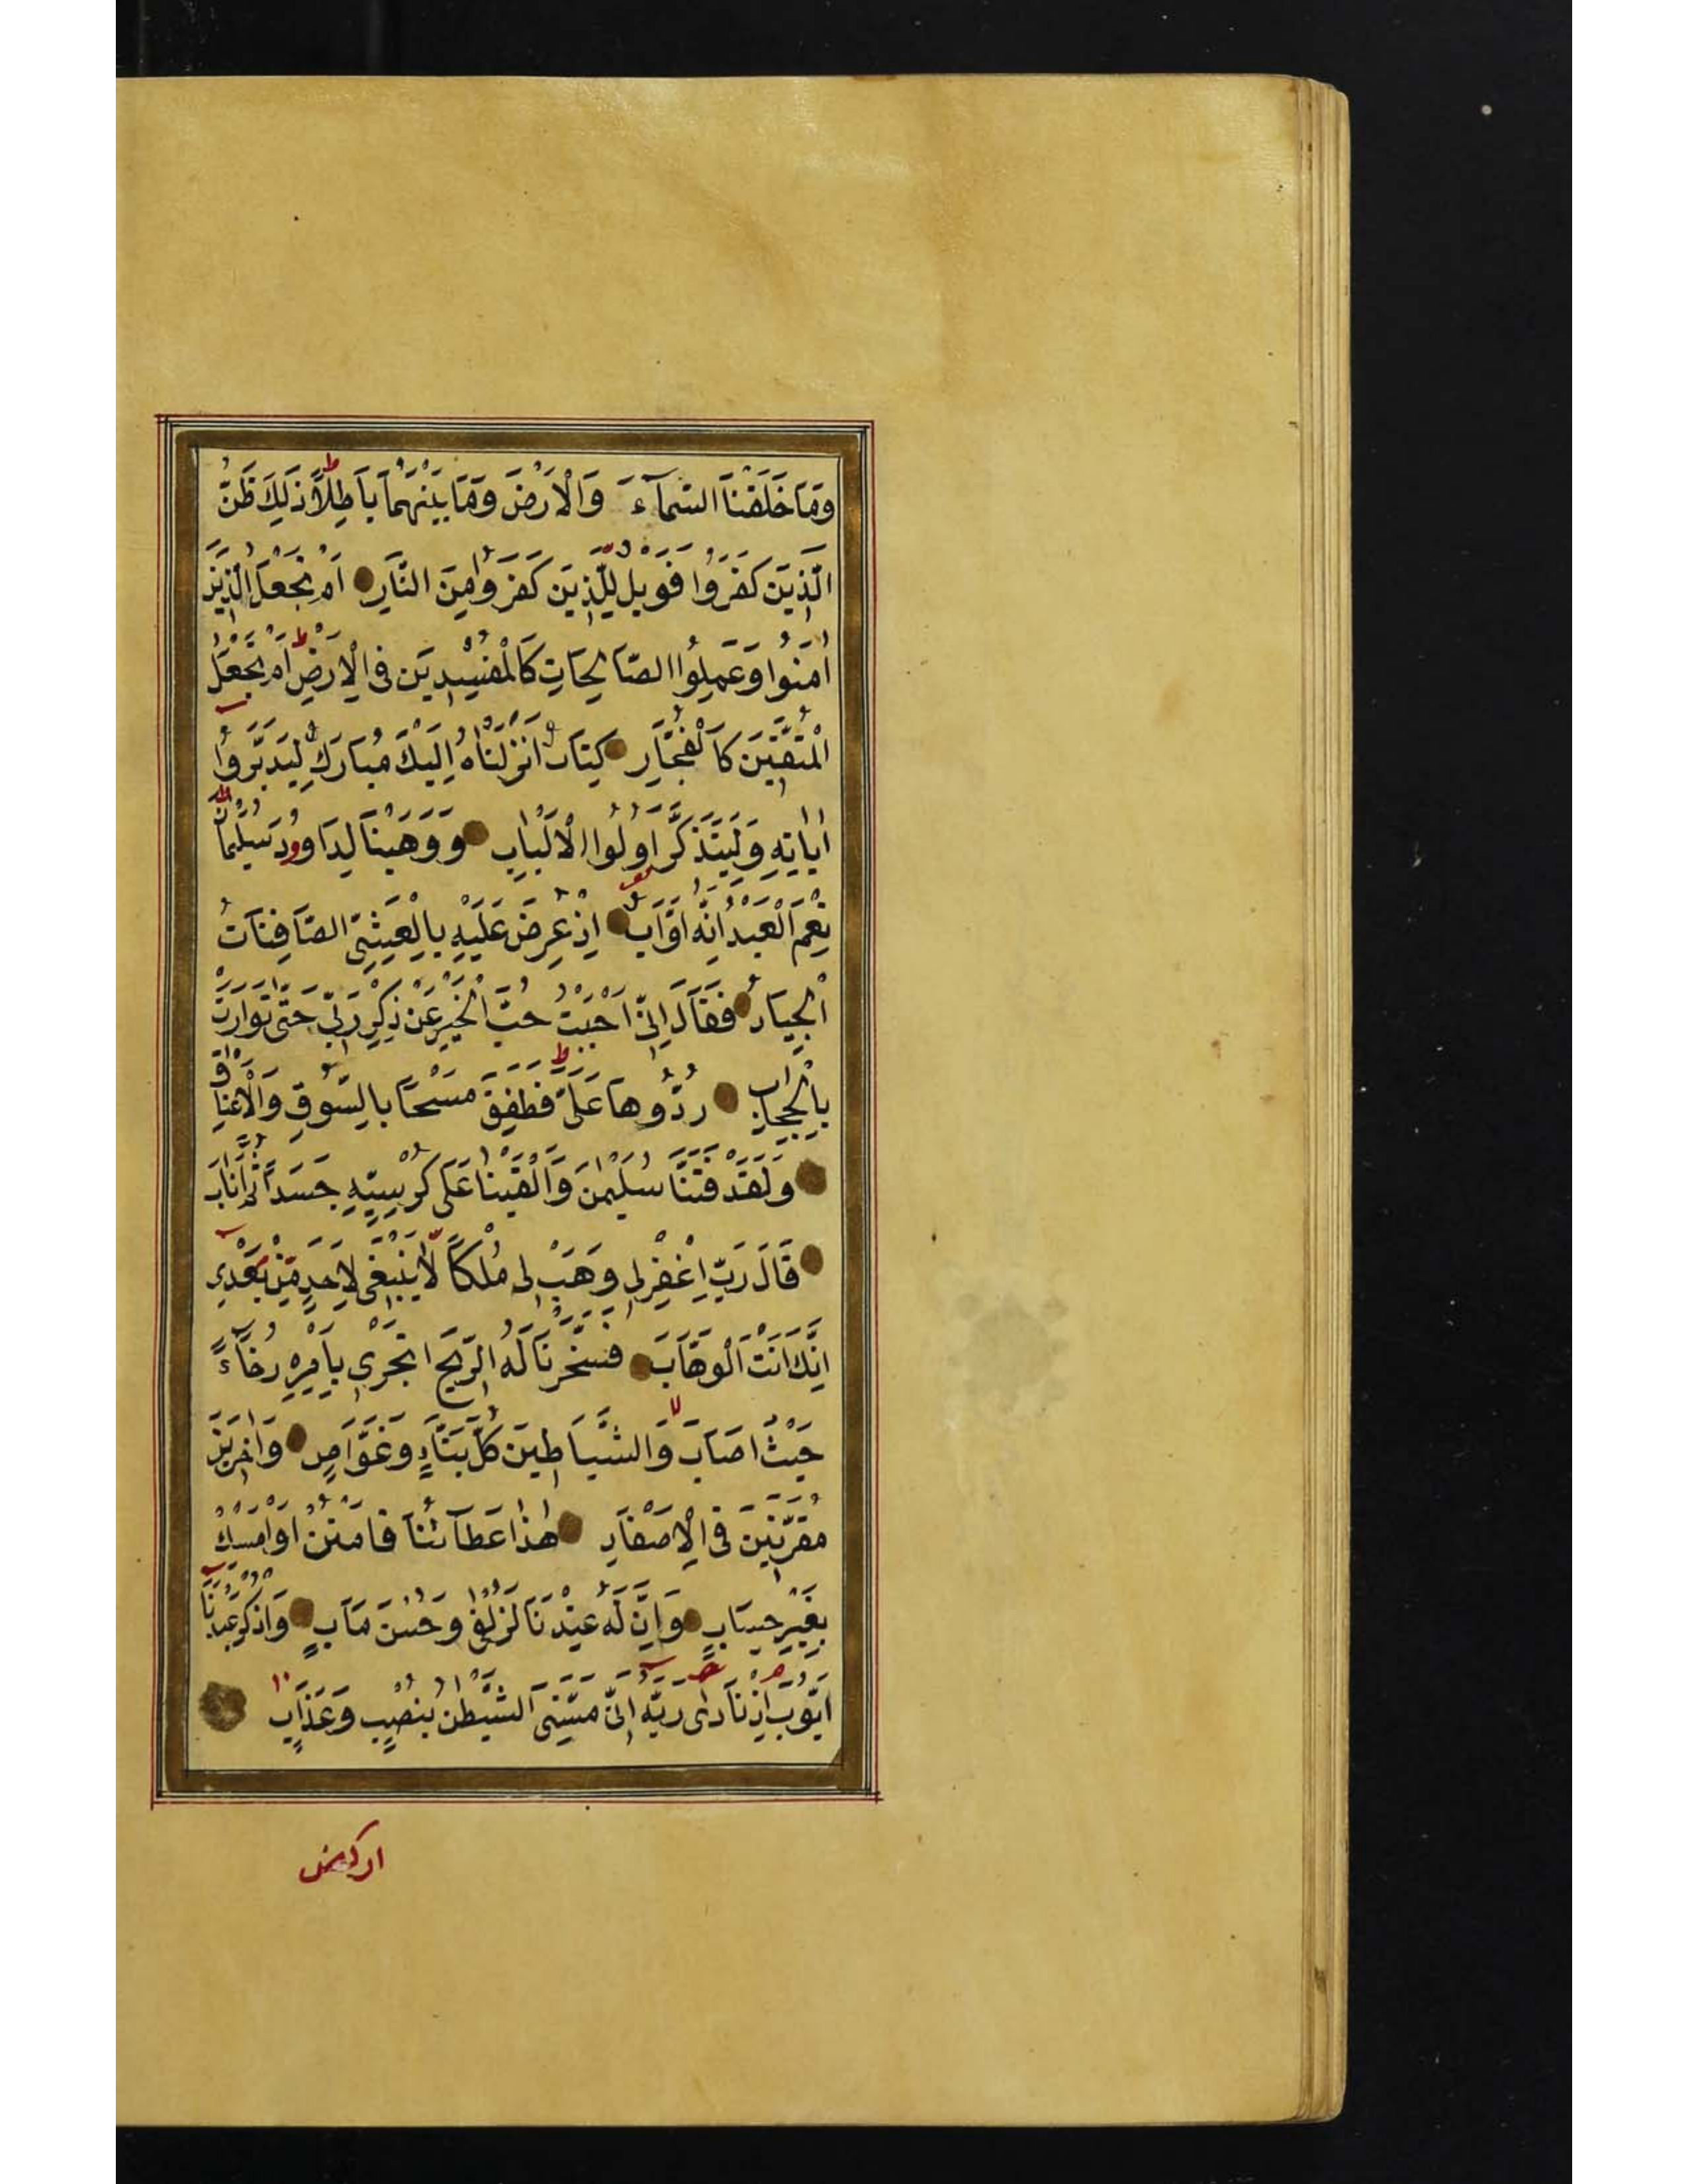 وَمَا خَلَقْنَا السَّمَآءَ وَالْاَرْضَ وَمَا بَيْنَهُمَا بَاطِلًا ذٰلِكَ ظَنُّ
الَّذِيْنَ كَفَرُوا فَوَيْلٌ لِلَّذِيْنَ كَفَرُوا مِنَ النَّارِ اَمْ نَجْعَلُ الَّذِيْنَ
اٰمَنُوا وَعَمِلُوا الصَّالِحَاتِ كَالْمُفْسِدِيْنَ فِى الْاَرْضِ اَمْ نَجْعَلُ
الْمُتَّقِيْنَ كَالْفُجَّارِ كِتَابٌ اَنْزَلْنَاهُ اِلَيْكَ مُبَارَكٌ لِيَدَّبَّرُوا
اٰيَاتِهِ وَلِيَتَذَكَّرَ اُولُوا الْاَلْبَابِ وَوَهَبْنَا لِدَاوُودَ سُلَيْمٰانَ
نِعْمَ الْعَبْدُ اِنَّهُ اَوَّابٌ اِذْ عُرِضَ عَلَيْهِ بِالْعَشِىِّ الصَّافِنَاتُ
الْجِيَادُ فَقَالَ اِنِّى اَحْبَبْتُ حُبَّ الْخَيْرِ عَنْ ذِكْرِ رَبِّى حَتّٰى تَوَارَتْ
بِالْحِجَابِ رُدُّوهَا عَلَىَّ فَطَفِقَ مَسْحًا بِالسُّوْقِ وَالْاَعْنَاقِ
وَلَقَدْ فَتَنَّا سُلَيْمٰنَ وَاَلْقَيْنَا عَلٰى كُرْسِيِّهِ جَسَدًا ثُمَّ اَنَابَ
قَالَ رَبِّ اِغْفِرْلِى وَهَبْ لِى مُلْكًا لَّا يَنْبَغِى لِاَحَدٍ مِّنْ بَعْدِى
اِنَّكَ اَنْتَ الْوَهَّابُ فَسَخَّرْنَا لَهُ الرِّيْحَ تَجْرِى بِاَمْرِهِ رُخَآءً
حَيْثُ اَصَابَ وَالشَّيَاطِيْنَ كُلَّ بَنَّاءٍ وَغَوَّاصٍ وَاٰخَرِيْنَ
مُقَرَّنِيْنَ فِى الْاَصْفَادِ هٰذَا عَطَآئُنَا فَامْنُنْ اَوْ اَمْسِكْ
بِغَيْرِ حِسَابٍ وَاِنَّ لَهُ عِنْدَنَا لَزُلْفٰى وَحُسْنَ مَآبٍ وَاذْكُرْ عَبْدَنَا
اَيُّوْبَ اِذْ نَادٰى رَبَّهُ اَنِّى مَسَّنِىَ الشَّيْطٰنُ بِنُصْبٍ وَعَذَابٍ
اركض